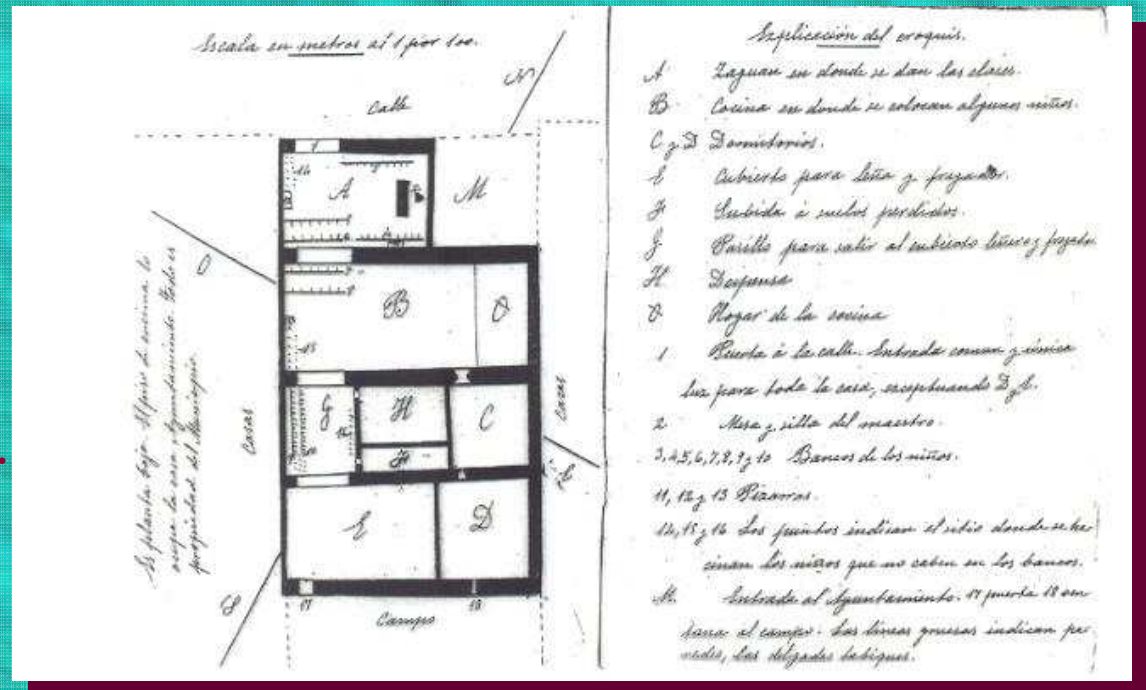 Escala en metros al 1 por 100.
N
Calle
1
14
A
2
M
O
B
O
15
Casas
G
H
C
Casas
F
E
E
D
S
17
18
Campo
Es planta baja. El piso de encima lo
ocupa la casa Ayuntamiento. Todo es
propiedad del Municipio.
Explicación del croquis.
A Zaguan en donde se dan las clases.
B Cocina en donde se colocan algunos niños.
C y D Dormitorios.
E Cubierto para leña y fregador.
F Subida á suelos perdidos.
G Pasillo para salir al cubierto leñero y fregador
H Despensa
O Hogar de la cocina
1 Puerta á la calle. Entrada comun y única
luz para toda la casa, exceptuando D, E.
2 Mesa y silla del maestro.
3, 4, 5, 6, 7, 8, 9 y 10 Bancos de los niños.
11, 12 y 13 Pizarras.
14, 15 y 16 Los puntos indican el sitio donde se ha-
cinan los niños que no caben en los bancos.
M. Entrada al Ayuntamiento. 17 puerta 18 ven
tana al campo. Las líneas gruesas indican pa-
redes, las delgadas tabiques.